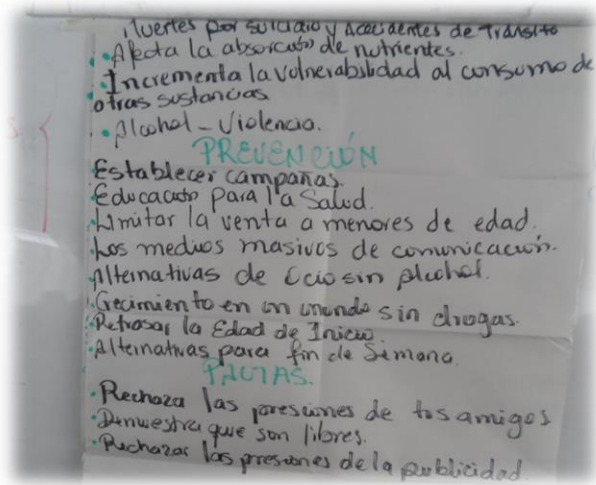 Muertes por suicidio y Accidentes de Tránsito
• Afecta la absorción de nutrientes.
• Incrementa la vulnerabilidad al consumo de
otras sustancias
• Alcohol - Violencia.
PREVENCIÓN
Establecer campañas.
Educación para la Salud.
Limitar la venta a menores de edad.
Los medios masivos de comunicación.
Alternativas de Ocio sin Alcohol.
Crecimiento en un mundo sin drogas.
Retrasar la Edad de Inicio.
Alternativas para fin de Semana.
PAUTAS.
• Rechaza las presiones de tus amigos
• Demuestra que son libres.
• Rechazar las presiones de la publicidad.